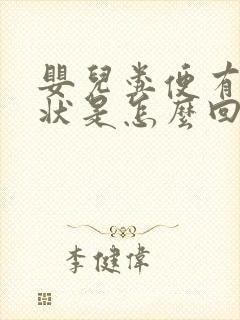 嬰兒糞便有
狀是怎麼回
李健偉